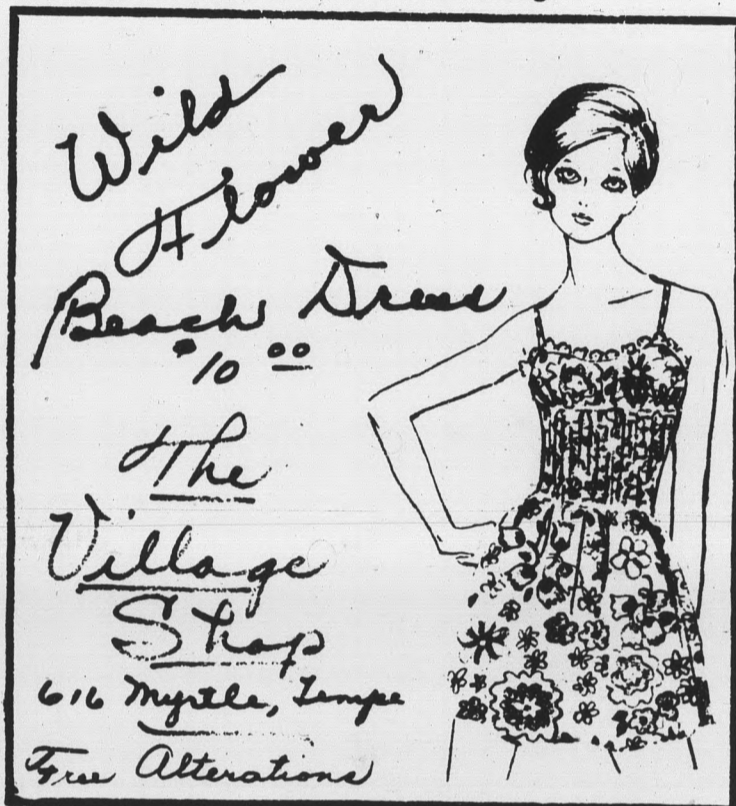 Wild
Flower
Beach Dress
$10 00
The
Village
Shop
616 Myrtle, Tempe
Free Alterations